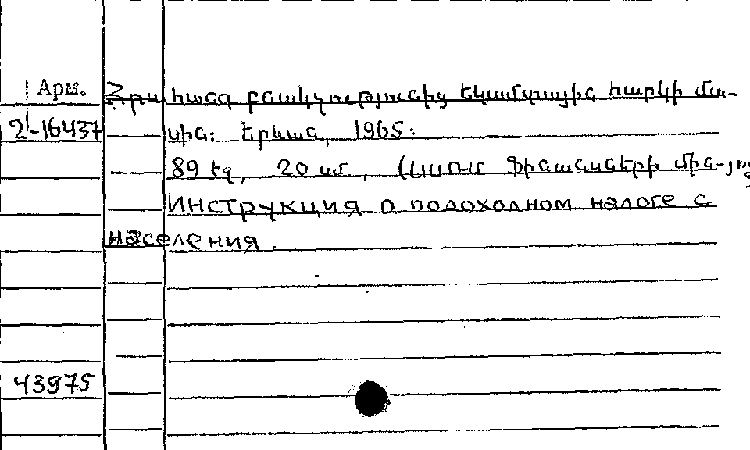 Арм. Հրահանգ բնակչությունից եկամտային հարկի մա-
2-16437 սին: Երևան, 1965:
89 էջ, 20 սմ, (ՍՍՌՄ Ֆինանսների մին-յու
Инструкция о подоходном налоге с
населения.
43975